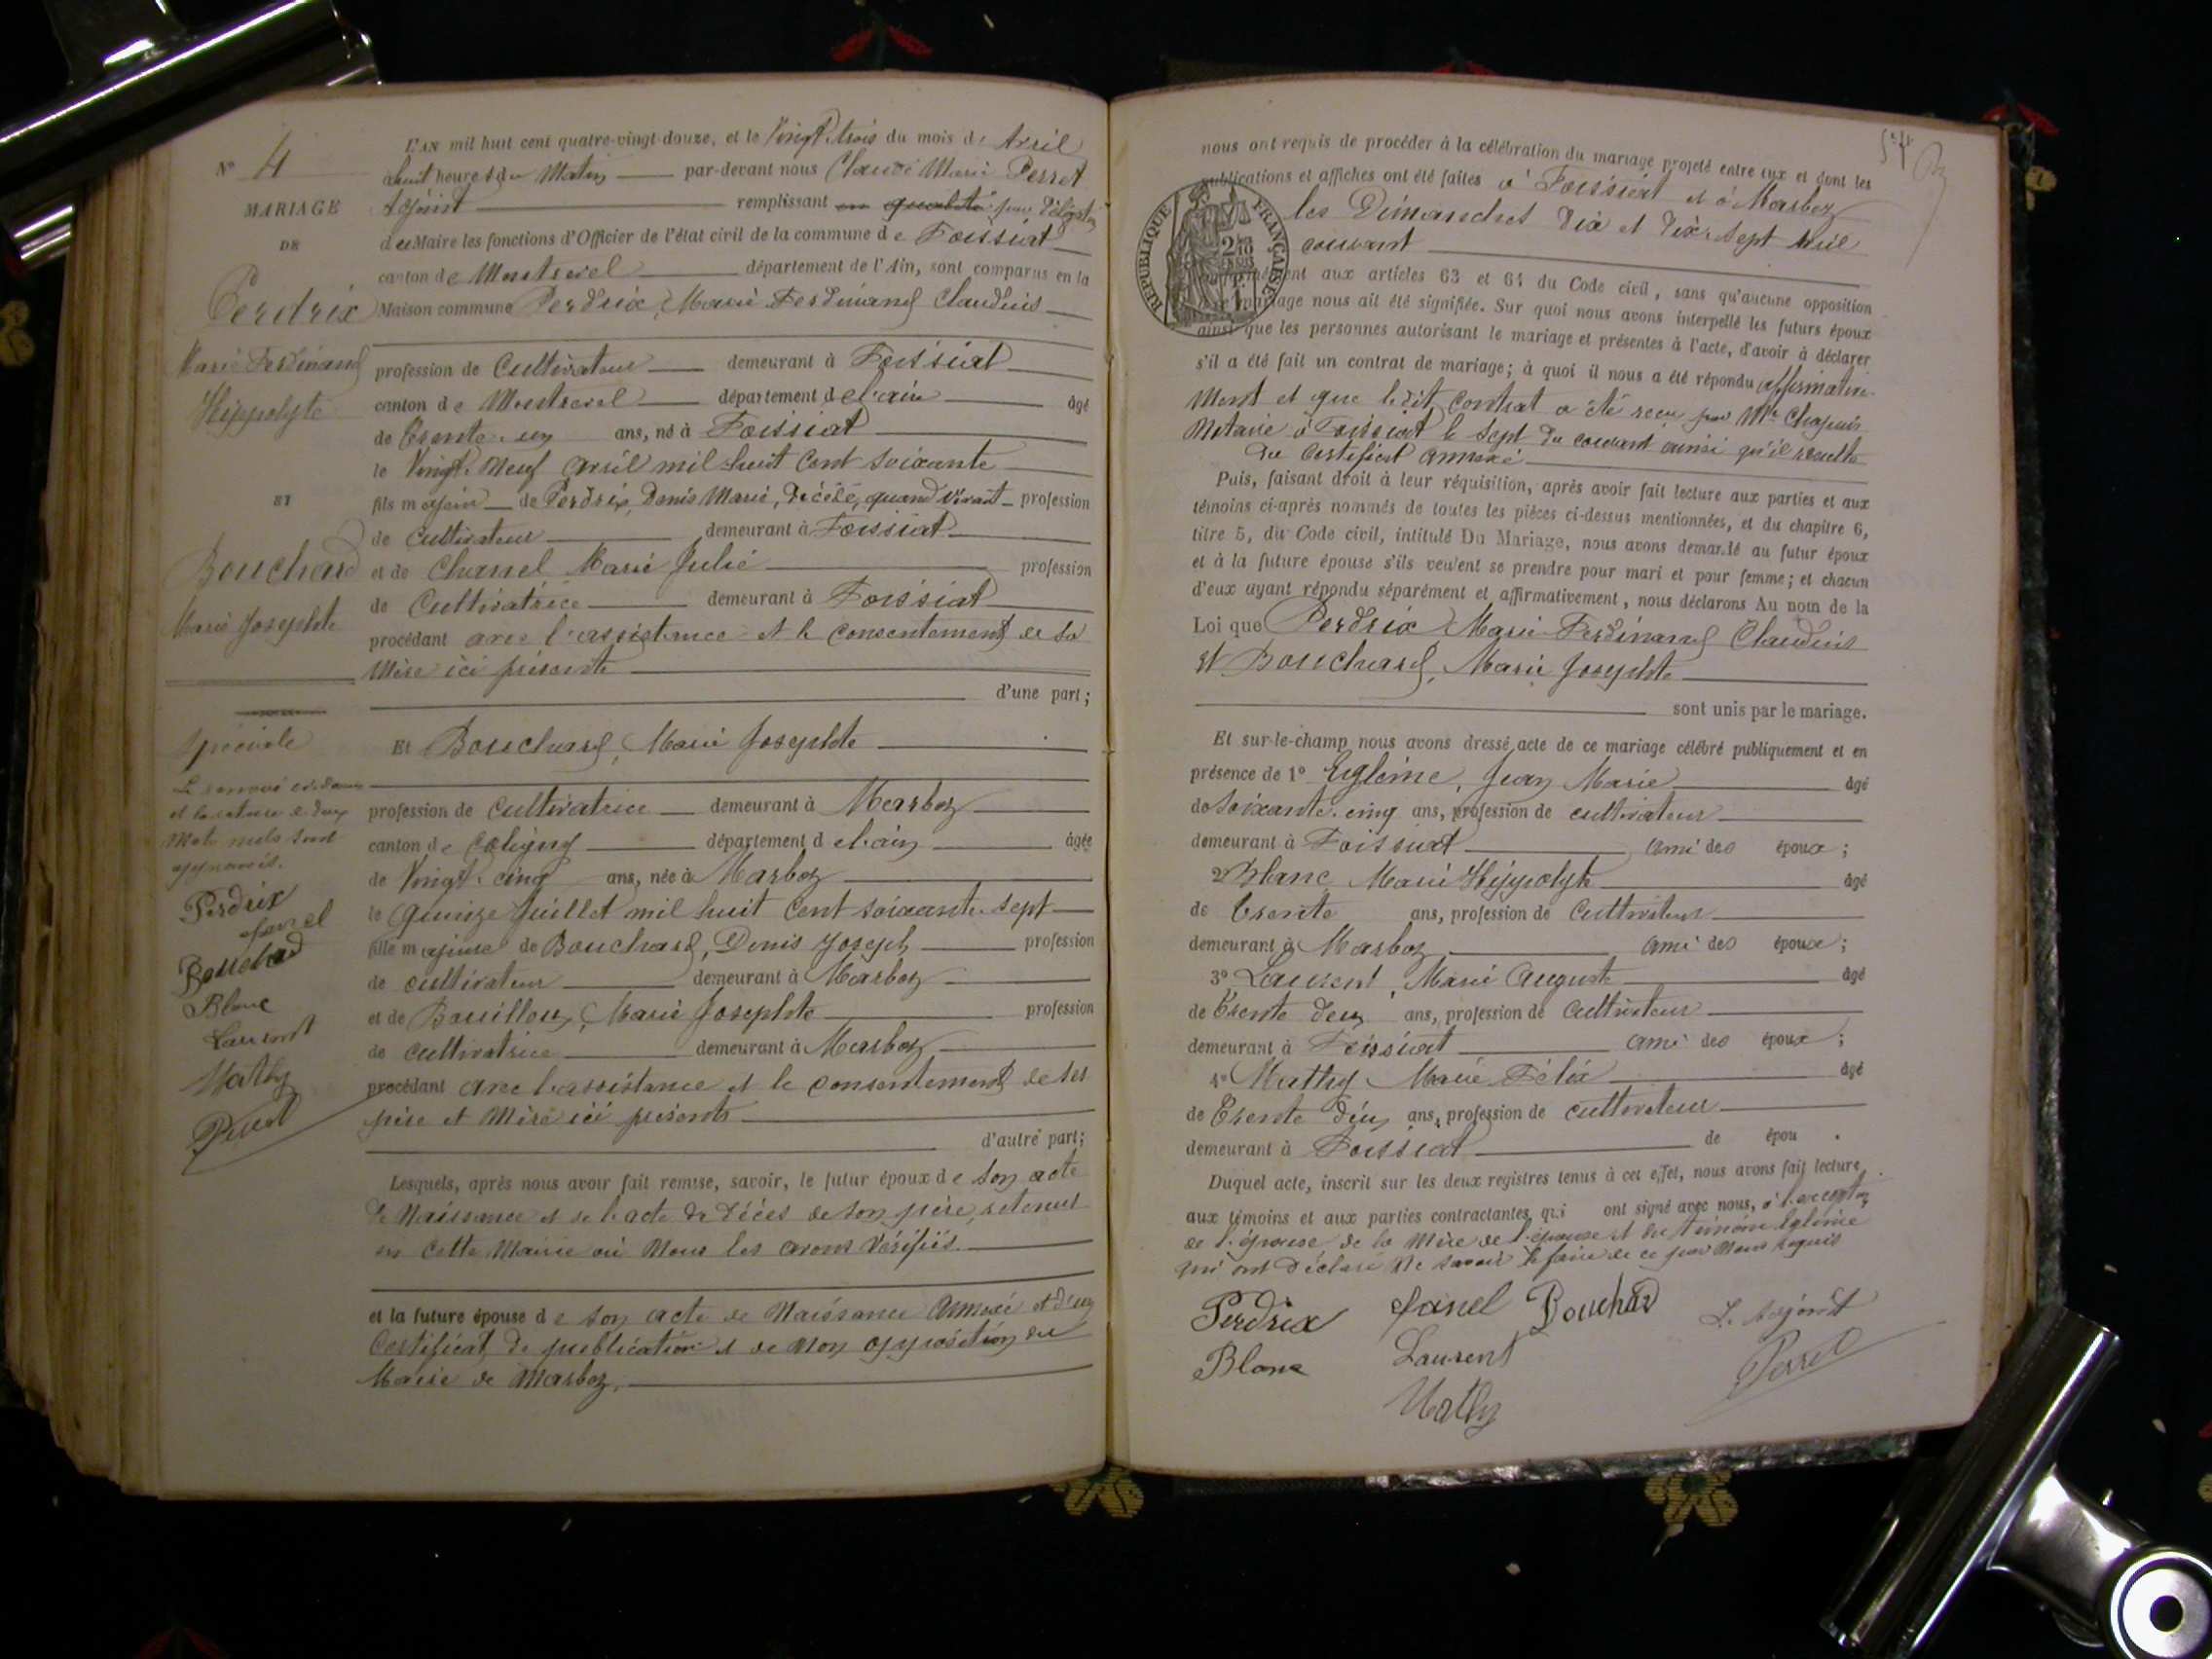 N° 4
MARIAGE
DE
Perdrix
Marie Ferdinand
Hippolyte
ET
Bouchard
Marie Josephte
Spéciale
Le renvoi ci-dessus
et la rature de deux
mots nuls sont
approuvés.
Perdrix
Bouchard
Blanc
Laurent
Mathy
Perret
L'AN mil huit cent quatre-vingt-douze, et le Vingt-trois du mois de Avril
à huit heures du Matin par-devant nous Claude Marie Perret
Adjoint remplissant en qualité par délégation
du Maire les fonctions d'Officier de l'état civil de la commune de Foissiat
canton de Montrevel département de l'Ain, sont comparus en la
Maison commune Perdrix, Marie Ferdinand Claudius
profession de Cultivateur demeurant à Foissiat
canton de Montrevel département de l'ain âgé
de trente-un ans, né à Foissiat
le Vingt-Neuf avril mil huit cent soixante
fils majeur de Perdrix, Denis Marie, Décédé, quand vivait profession
de Cultivateur demeurant à Foissiat
et de Chanel Marie Julie profession
de Cultivatrice demeurant à Foissiat
procédant avec l'assistance et le consentement de sa
Mère ici présente
d'une part;
Et Bouchard, Marie Josephte
profession de cultivatrice demeurant à Marboz
canton de Coligny département de l'ain âgée
de Vingt-cinq ans, née à Marboz
le quinze Juillet mil huit cent soixante-sept
fille majeure de Bouchard, Denis Joseph profession
de cultivateur demeurant à Marboz
et de Bouilloux, Marie Josephte profession
de cultivatrice demeurant à Marboz
procédant avec l'assistance et le consentement de ses
père et Mère ici présents
d'autre part;
Lesquels, après nous avoir fait remise, savoir, le futur époux de son acte
de Naissance et de l'acte de décès de son père, retenus
en cette Mairie où Nous les avons Vérifiés.
et la future épouse de son acte de Naissance annexé et d'un
Certificat de publication et de non opposition du
Maire de Marboz.
nous ont requis de procéder à la célébration du mariage projeté entre eux et dont les
publications et affiches ont été faites à Foissiat et à Marboz
les Dimanches dix et dix-sept avril
courant
RÉPUBLIQUE FRANÇAISE
conformément aux articles 63 et 64 du Code civil, sans qu'aucune opposition
au mariage nous ait été signifiée. Sur quoi nous avons interpellé les futurs époux
ainsi que les personnes autorisant le mariage et présentes à l'acte, d'avoir à déclarer
s'il a été fait un contrat de mariage; à quoi il nous a été répondu affirmative-
ment et que ledit contrat a été reçu par Me Chapuis
Notaire à Foissiat le sept du courant ainsi qu'il résulte
du certificat annexé
Puis, faisant droit à leur réquisition, après avoir fait lecture aux parties et aux
témoins ci-après nommés de toutes les pièces ci-dessus mentionnées, et du chapitre 6,
titre 5, du Code civil, intitulé Du Mariage, nous avons demandé au futur époux
et à la future épouse s'ils veulent se prendre pour mari et pour femme; et chacun
d'eux ayant répondu séparément et affirmativement, nous déclarons Au nom de la
Loi que Perdrix Marie Ferdinand Claudius
et Bouchard, Marie Josephte
sont unis par le mariage.
Et sur-le-champ nous avons dressé acte de ce mariage célébré publiquement et en
présence de 1° Egléme, Jean Marie âgé
de soixante-cinq ans, profession de cultivateur
demeurant à Foissiat ami des époux;
2 Blanc Marie Hippolyte âgé
de trente ans, profession de cultivateur
demeurant à Marboz ami des époux;
3° Laurent, Marie Auguste âgé
de trente deux ans, profession de cultivateur
demeurant à Foissiat ami des époux;
4° Mathy Marie Félix âgé
de trente deux ans, profession de cultivateur
demeurant à Foissiat de épou .
Duquel acte, inscrit sur les deux registres tenus à cet effet, nous avons fait lecture
aux témoins et aux parties contractantes qui ont signé avec nous, à l'exception
de l'épouse de la Mère de l'épouse et du témoin Egléme
qui ont déclaré ne savoir le faire de ce par Nous requis
Perdrix Chanel Bouchard L'Adjoint
Blanc Laurent Perret
Mathy